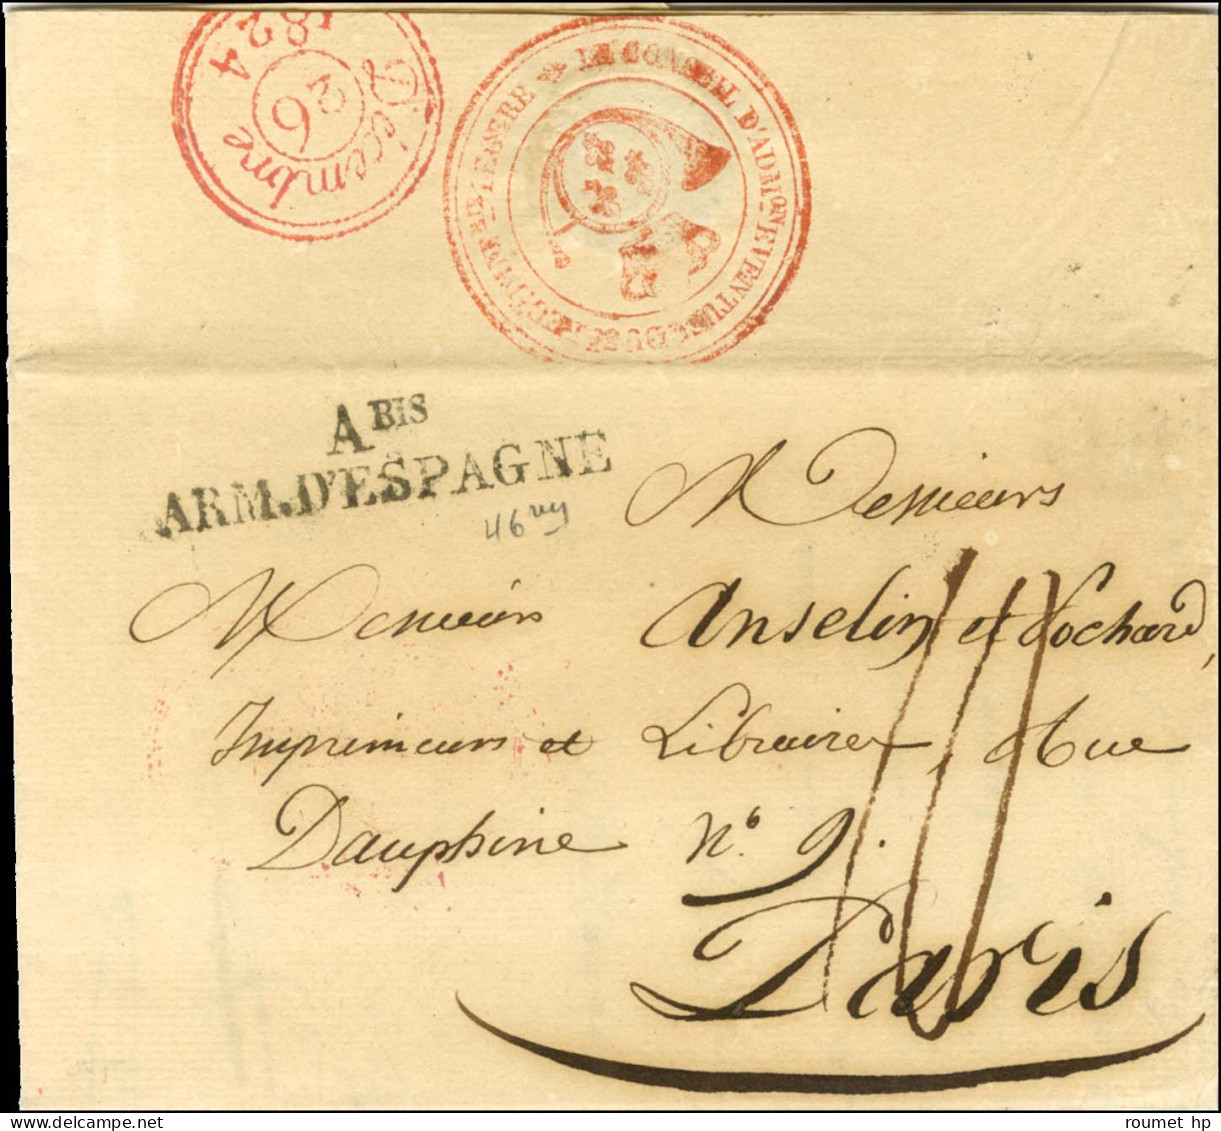 Décembre
26
1824
LE CONSEIL D'ADM.ION EVENTUEL DU
LEGERE
A BIS
ARM.D'ESPAGNE
46
Messieurs
Messieurs Anselin et Pochard,
Imprimeurs et Libraires, Rue
Dauphine N.o 9.
Paris
roumet hp